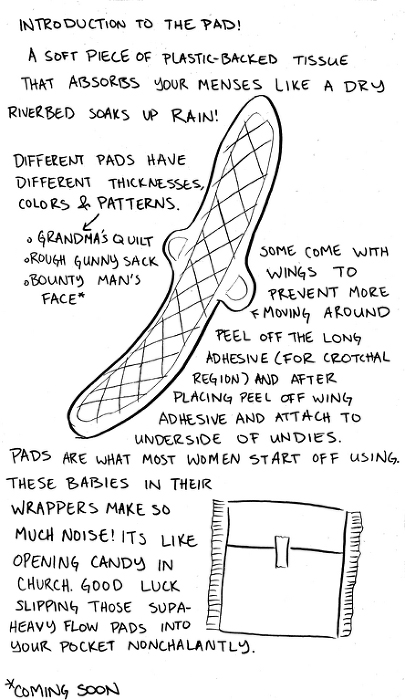 INTRODUCTION TO THE PAD!
A SOFT PIECE OF PLASTIC-BACKED TISSUE
THAT ABSORBS YOUR MENSES LIKE A DRY
RIVERBED SOAKS UP RAIN!
DIFFERENT PADS HAVE
DIFFERENT THICKNESSES,
COLORS & PATTERNS.
GRANDMA'S QUILT
ROUGH GUNNY SACK
BOUNTY MAN'S
FACE*
SOME COME WITH
WINGS TO
PREVENT MORE
MOVING AROUND
PEEL OFF THE LONG
ADHESIVE (FOR CROTCHAL
REGION) AND AFTER
PLACING PEEL OFF WING
ADHESIVE AND ATTACH TO
UNDERSIDE OF UNDIES.
PADS ARE WHAT MOST WOMEN START OFF USING.
THESE BABIES IN THEIR
WRAPPERS MAKE SO
MUCH NOISE! ITS LIKE
OPENING CANDY IN
CHURCH. GOOD LUCK
SLIPPING THOSE SUPA-
HEAVY FLOW PADS INTO
YOUR POCKET NONCHALANTLY.
*COMING SOON